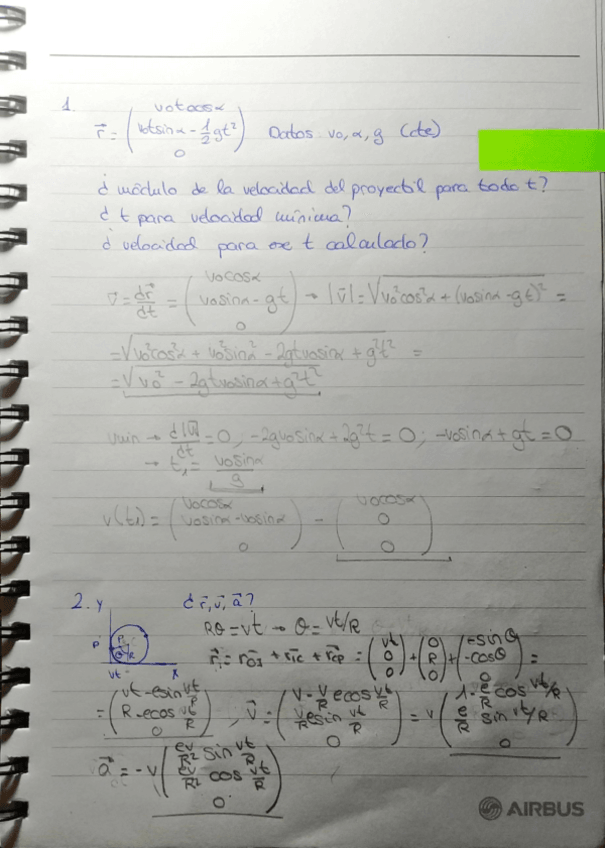 1.
r⃗ = (v0tcosα
v0tsinα - 1/2 gt²
0) Datos: v0, α, g (cte)
¿ módulo de la velocidad del proyectil para todo t?
¿ t para velocidad mínima?
¿ velocidad para ese t calculado?
v⃗ = dr⃗/dt = (v0cosα
v0sinα - gt
0) → |v⃗| = √(v0²cos²α + (v0sinα - gt)²) =
= √(v0²cos²α + v0²sin²α - 2gtv0sinα + g²t²) =
= √(v0² - 2gtv0sinα + g²t²)
vmin → d|v⃗|/dt = 0, -2gv0sinα + 2g²t = 0; -v0sinα + gt = 0
→ t1 = v0sinα/g
v(t1) = (v0cosα
v0sinα - v0sinα
0) - (v0cosα
0
0)
2. y ¿ r⃗, v⃗, a⃗ ?
Rθ = vt → θ = vt/R
P R vt x
r⃗ = r01 + r1c + rcp = (vt
0
0) + (0
R
0) + (-esinθ
-ecosθ
0) =
= (vt - esin vt/R
R - ecos vt/R
0), v⃗ = (v - v/R ecos vt/R
v/R esin vt/R
0) = v (1 - e/R cos vt/R
e/R sin vt/R
0)
a⃗ = -v (ev/R² sin vt/R
ev/R² cos vt/R
0)
AIRBUS